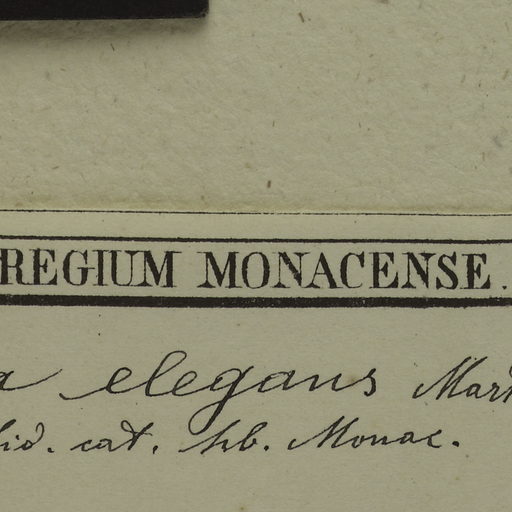 REGIUM MONACENSE.
elegans Mart
cat. hb. Monac.